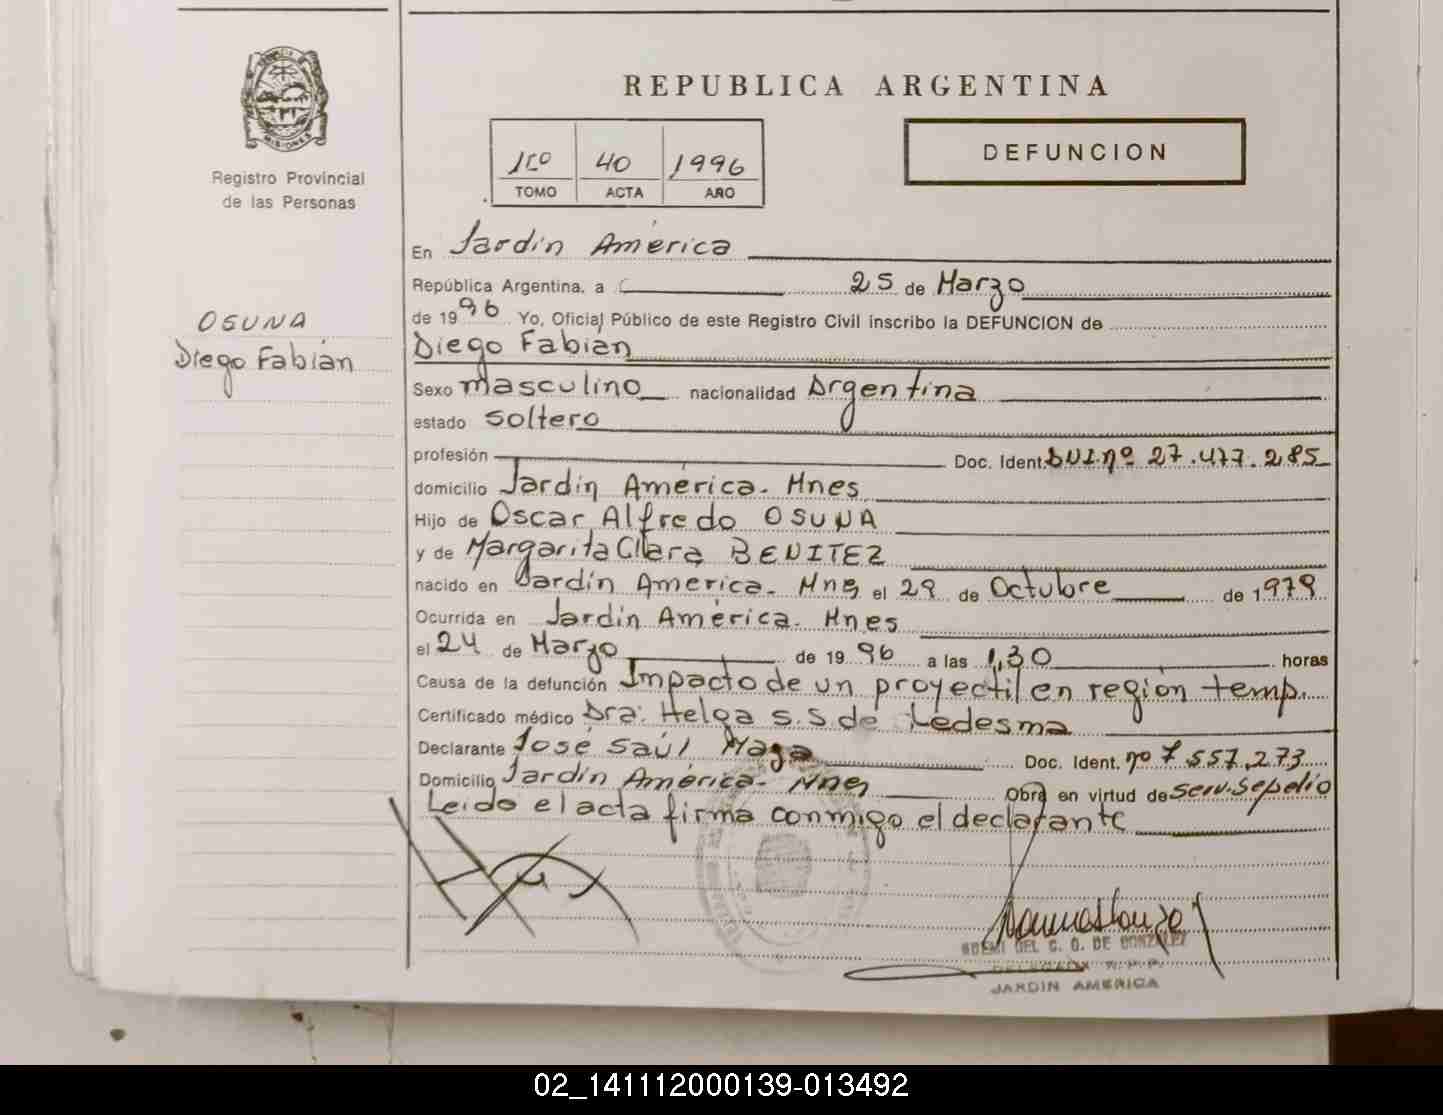 REPUBLICA ARGENTINA
MISIONES
Registro Provincial
de las Personas
1ro 40 1996
TOMO ACTA AÑO
DEFUNCION
OSUNA
Diego Fabián
En Jardín América
República Argentina, a 25 de Marzo
de 1996 Yo, Oficial Público de este Registro Civil inscribo la DEFUNCION de
Diego Fabian
Sexo masculino nacionalidad Argentina
estado Soltero
profesión Doc. Ident. DNI nº 27.477.285
domicilio Jardín América. Mnes
Hijo de Oscar Alfredo OSUNA
y de Margarita Clara BENITEZ
nacido en Jardín América. Mnes el 29 de Octubre de 1979
Ocurrida en Jardín América. Mnes
el 24 de Marzo de 1996 a las 1,30 horas
Causa de la defunción Impacto de un proyectil en región temp.
Certificado médico Dra: Helga S.S. de Ledesma
Declarante José Saúl Maga Doc. Ident. nº 7.557.273
Domicilio Jardín América. Mnes Obra en virtud de Serv. Sepelio
Leído el acta firma conmigo el declarante
DEL C. O. DE GONZALEZ
DELEGADA R.P.P.
JARDIN AMERICA
02_141112000139-013492